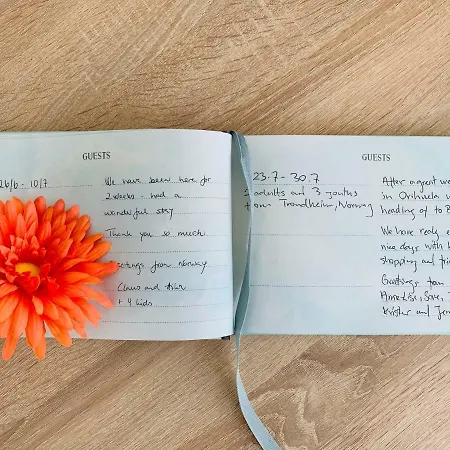 GUESTS
26/6 - 10/7
We have been here for
2 weeks - had a
wonderful stay
Thank you so much
greetings from norway
Claus and
+ 4 kids
GUESTS
23.7 - 30.7
2 adults and 3 youths
from Trondheim, Norway
After a great we
in Orihuela w
heading of to B
We have really e
nice days with b
shopping and
Greetings from
Anne-Lise,
Kristter and Jen